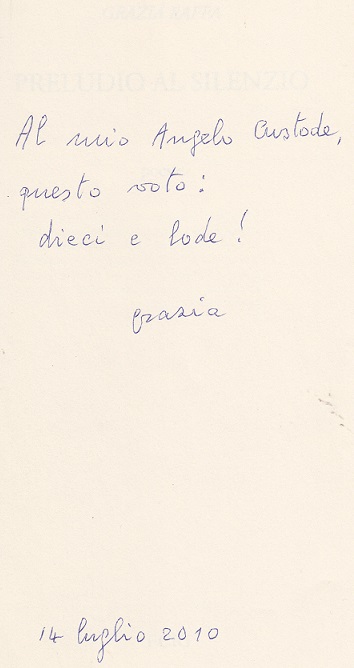 PRELUDIO AL SILENZIO
Al mio Angelo Custode,
questo voto:
dieci e lode!
grazia
14 luglio 2010